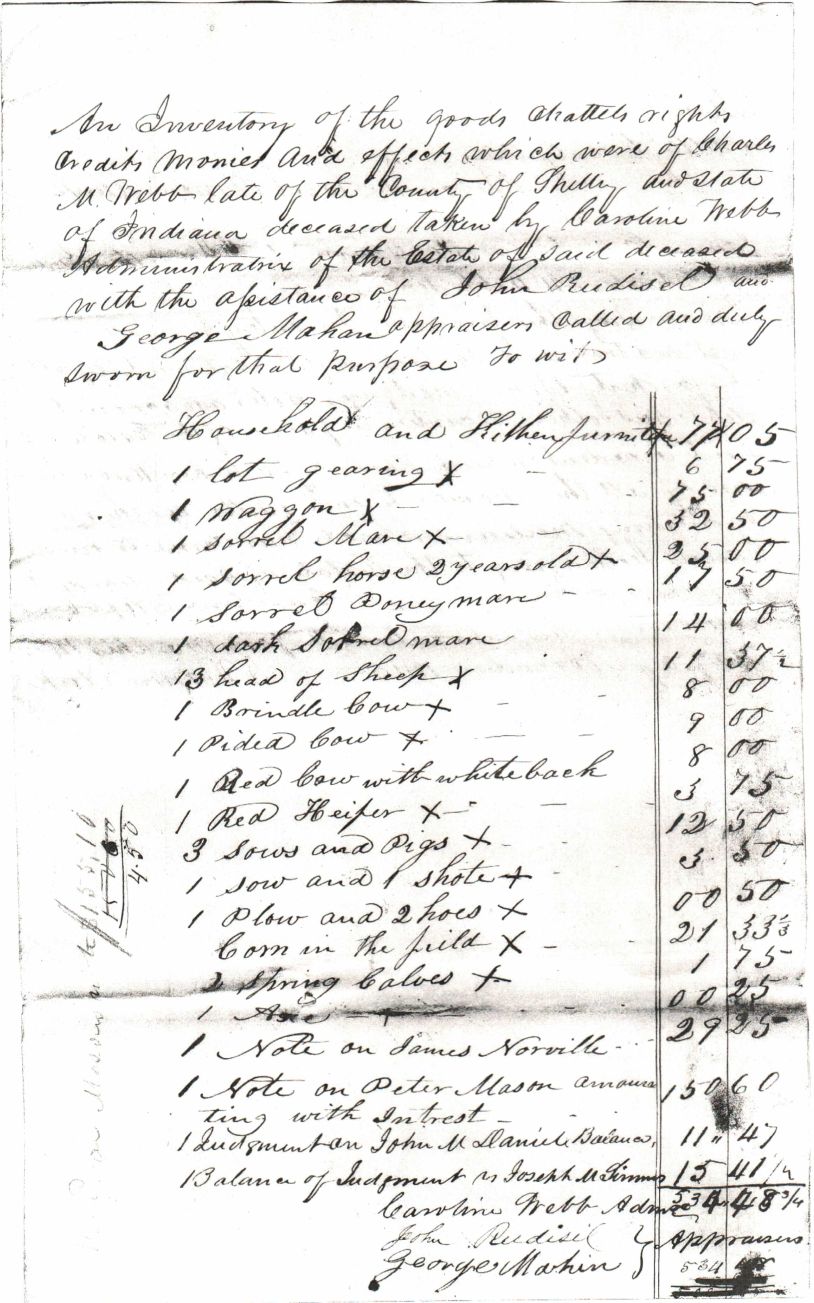 An Inventory of the goods chattels rights
credits monies and effects which were of Charles
M. Webb late of the County of Shelby and State
of Indiana deceased taken by Caroline Webb
Administratrix of the Estate of said deceased
with the assistance of John Rudisel and
George Mahan appraisers called and duly
sworn for that purpose To wit
Household and Kithen furniture 77 05
1 lot gearing X - 6 75
1 Waggon X - - 75 00
1 Sorrel Mare X - 32 50
1 Sorrel horse 2 years old X 25 00
1 Sorrel Poney mare - 17 50
1 dark Sorrel mare 14 00
13 head of Sheep X 11 37½
1 Brindle Cow X - - 8 00
1 Pided Cow X - - 9 00
1 Red Cow with white back 8 00
1 Red Heifer X - - 3 75
3 Sows and Pigs X - 12 50
1 Sow and 1 shote X 3 50
1 Plow and 2 hoes X 00 50
Corn in the feild X - 21 33⅓
2 Spring Calves X 1 75
1 Axe 00 25
1 Note on James Norville 29 25
1 Note on Peter Mason amoun 150 60
ting with Intrest -
1 Judgment on John M Daniels Balance, 11 " 47
1 Balance of Judgment vs Joseph 15 41 1/4
Caroline Webb Admx 534 48 3/4
John Rudisel } Appraisers
George Mahin
534
155,10
4 50